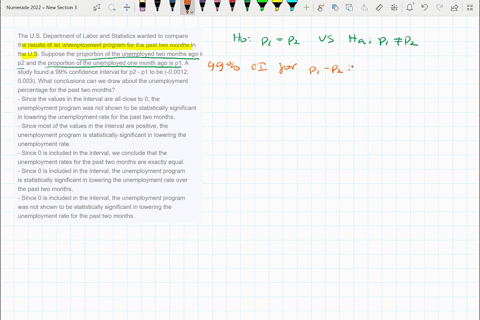 Numerade 2022 > New Section 3
The U.S. Department of Labor and Statistics wanted to compare
the results of an unemployment program for the past two months in
the U.S. Suppose the proportion of the unemployed two months ago is
p2 and the proportion of the unemployed one month ago is p1. A
study found a 99% confidence interval for p2 - p1 to be (-0.0012,
0.003). What conclusions can we draw about the unemployment
percentage for the past two months?
- Since the values in the interval are all close to 0, the
unemployment program was not shown to be statistically significant
in lowering the unemployment rate for the past two months.
- Since most of the values in the interval are positive, the
unemployment program is statistically significant in lowering the
unemployment rate.
- Since 0 is included in the interval, we conclude that the
unemployment rates for the past two months are exactly equal.
- Since 0 is included in the interval, the unemployment program
is statistically significant in lowering the unemployment rate over
the past two months.
- Since 0 is included in the interval, the unemployment program
was not shown to be statistically significant in lowering the
unemployment rate for the past two months.
Ho: p1 = p2 VS Ha: p1 ≠ p2
99% CI for p1 - p2 :